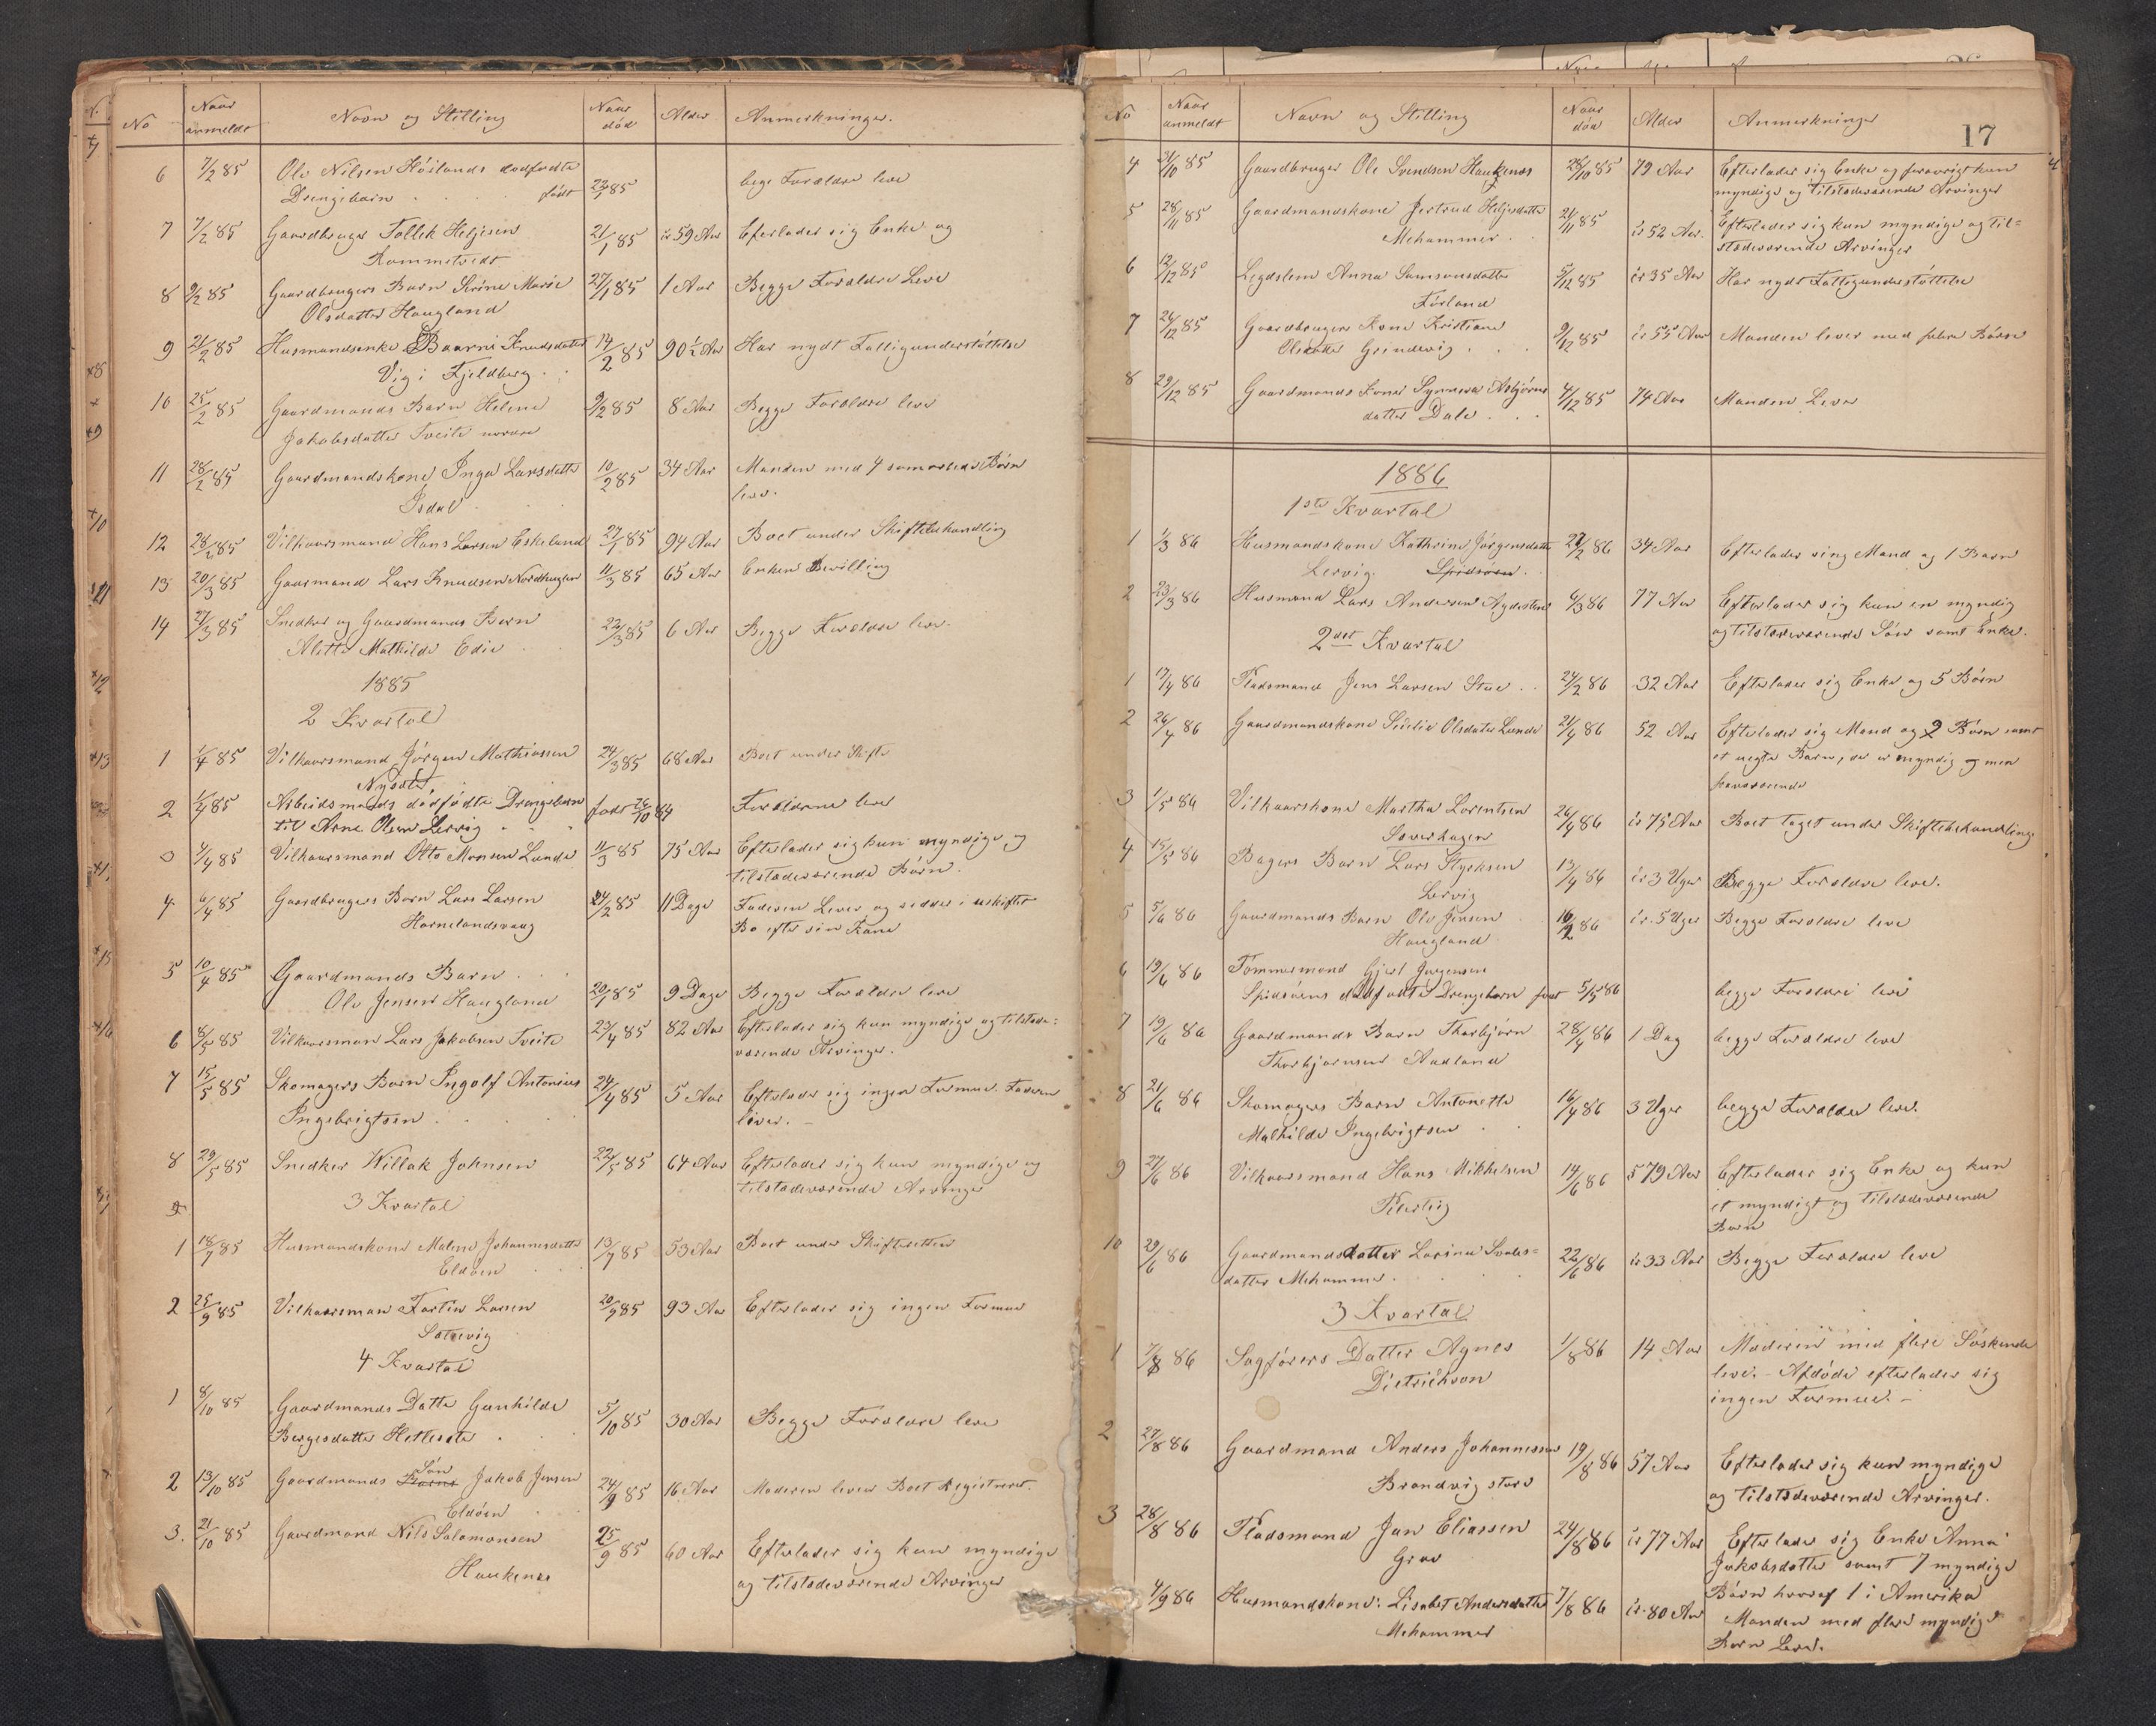 No Naar anmeldt Navn og Stilling Naar död Alder Anmerkninger.
6 7/2 85 Ole Nilsen Höilands dödfödte
Drengebarn . . . . födt 22/1 85 bege Forældre leve
7 7/2 85 Gaardbruger Tollek Heljesen 21/1 85 ir 59 Aar Efterlader sig Enke og
Rommetvedt
8 9/2 85 Gaardbrugers Barn Marie 27/1 85 1 Aar Begge Forældre Leve
Olsdatter Haugland
9 21/2 85 Husmandsenke Knudsdatter 14/2 85 90 1/2 Aar Har nydt Fattigunderstöttelse
Vig i Fjeldberg .
10 25/2 85 Gaardmands Barn Helene 9/2 85 8 Aar Begge Forældre leve
Jakobsdatter Tveite nordre
11 28/2 85 Gaardmandskone Inga Larsdatter 10/2 85 34 Aar Manden med 4 Börn
Isdal lever.
12 28/2 85 Vilkaarsmand Hans Larsen Eskeland 27/1 85 94 Aar Boet under Skiftebehandling
13 20/3 85 Gaarmand Lars Knudsen Nordhugen 11/3 85 65 Aar Enken Bevilling
14 27/3 85 Snedker og Gaardmands Barn 22/3 85 6 Aar Begge Forældre leve.
Alette Mathilde Edie
1885
2 Kvartal
1 1/4 85 Vilkaarsmand Jörgen Mathiassen 24/3 85 68 Aar Boet under Skifte
2 1/4 85 Arbeidsmands döfödte Drengebarn födt 26/10 84 Forældrene leve
til Arne Olsen Lervig
3 4/4 85 Vilkaarsmand Otto Monsen Lunde 11/3 85 75 Aar Efterlader sig kun myndige og
tilstedeværende Börn.
4 6/4 85 Gaardbrugers Barn Lars Larsen 24/2 85 11 Dage Faderen Lever og sidder i uskiftet
Hornelandsvaag Bo efter sin Kone
5 10/4 85 Gaardmands Barn . .
Ole Jensen Haugland 20/1 85 9 Dage Begge Forældre leve
6 8/5 85 Vilkaarsman Lars Jakobsen Tveite 23/4 85 82 Aar Efterlader sig kun myndige og tilstede-
værende Arvinger.
7 15/5 85 Skomagers Barn Ingolf Antonius 24/4 85 5 Aar Efterlader sig ingen Formue. Faderen
Ingebrigtsen lever. -
8 29/5 85 Snedker Willak Johnsen 22/5 85 64 Aar Efterlader sig kun myndige og
tilstedeværende Arvinger
3 Kvartal
1 18/7 85 Husmandskone Malene Johannesdatter 13/7 85 53 Aar Boet under Skifteretten
Eldöen
2 25/9 85 Vilkaarsman Larsen 20/9 85 93 Aar Efterlader sig ingen Formue
Sætrevig
4 Kvartal
1 8/10 85 Gaardmands Datter Gunhilde
Bergesdatter 5/10 85 30 Aar Begge Forældre leve
2 13/10 85 Gaardmands Barns Sön Jakob Jensen 24/9 85 16 Aar Moderen lever Boet Registreret.
Eldöen
3. 21/10 85 Gaardmand Nils Salomonsen 25/9 85 60 Aar Efterlader sig kun myndige
Haukenæs og tilstedeværende Arvinger
17
No Naar anmeldt Navn og Stilling Naar död Alder Anmerkninger
4 31/10 85 Gaardbruger Ole Svendsen Haukenæs 28/10 85 79 Aar Efterlader sig Enke og forövrigt kun
myndige og tilstedeværende Arvinger
5 28/11 85 Gaardmandskone Jertrud Heljesdatter 21/11 85 ir 52 Aar. Efterlader sig kun myndige og til-
Mehammer . stedeværende Arvinger
6 12/12 85 Legdslem Anna Samsonsdatter 5/12 85 ir 35 Aar Har nydt Fattigunderstöttelse
Förland
7 24/12 85 Gaardbrugers Kone Kristiane 9/12 85 ir 55 Aar Manden lever med flere Börn
Olsdatter Grindevig . . .
8 29/12 85 Gaardmands Kone Synneva Asbjörns 4/12 85 74 Aar Manden Lever
datter Dale . . .
1886
1ste Kvartal
1 1/3 86 Husmandskone Kathrine Jörgensdatter 22/2 86 34 Aar Efterlader sing Mand og 1 Barn
Lervig. Spidsöen.
2 23/3 86 Husmand Lars Andersen 4/3 86 77 Aar Efterlader sig kun en myndig
og tilstedeværende Sön samt Enke.
2det Kvartal
1 17/4 86 Pladsmand Jens Larsen Stue . . 24/2 86 32 Aar Efterlader sig Enke og 5 Börn
2 24/4 86 Gaardmandskone Sicilie Olsdatter Lunde 21/4 86 52 Aar Efterlader sig Mand og 2 Börn samt
et uegte Barn, der er myndig og men
fraværende
3 1/5 86 Vilkaarskone Martha Lorentsen 26/4 86 ir 75 Aar Boet taget under Skiftebehandling
4 15/5 86 Bagers Barn Lars Styrksen 13/4 86 ir 3 Uger Begge Forældre leve.
Lervig
5 5/6 86 Gaardmands Barn Ole Jensen 16/2 86 ir. 5 Uger Begge Forældre leve
Haugland
6 19/6 86 Tömmermand Gjert Jørgensen
Spidsöens dödfödte Drengebarn född 5/5 86 begge Forældre leve
7 19/6 86 Gaardmands Barn Thorbjörn 28/4 86 1 Dag begge Forældre leve
Thorbjørnsen Aadland
8 21/6 86 Skomagers Barn Antonette 16/4 86 3 Uger begge Forældre leve.
Mathilde Ingebrigtsen
9 27/6 86 Vilkaarsmand Hans Mikkelsen 14/6 86 79 Aar Efterlader sig Enke og kun
et myndigt og tilstedeværende
Barn
10 29/6 86 Gaardmandsdatter Larine
datter Mehammer. 22/6 86 ir 33 Aar Begge Forældre leve
3 Kvartal
1 7/8 86 Sagförers Datter Agnes 1/8 86 14 Aar Moderen med flere Söskende
Dietrichson leve. - Afdöde efterlader sig
ingen Formue. -
2 27/8 86 Gaardmand Anders Johannessen 19/8 86 57 Aar Efterlader sig kun myndige
Brandvig store og tilstedeværende Arvinger.
3 28/8 86 Pladsmand Jan Eliassen 24/8 86 ir 77 Aar Efterlader sig Enke Anna
Grov Jakobsdatter samt 7 myndige
Börn hvoraf 1 i Amerika
4/9 86 Husmandskone: Lisabet Andersdatter 7/8 86 ir. 80 Aar Manden med flere myndige
Mehammer Börn Lever.